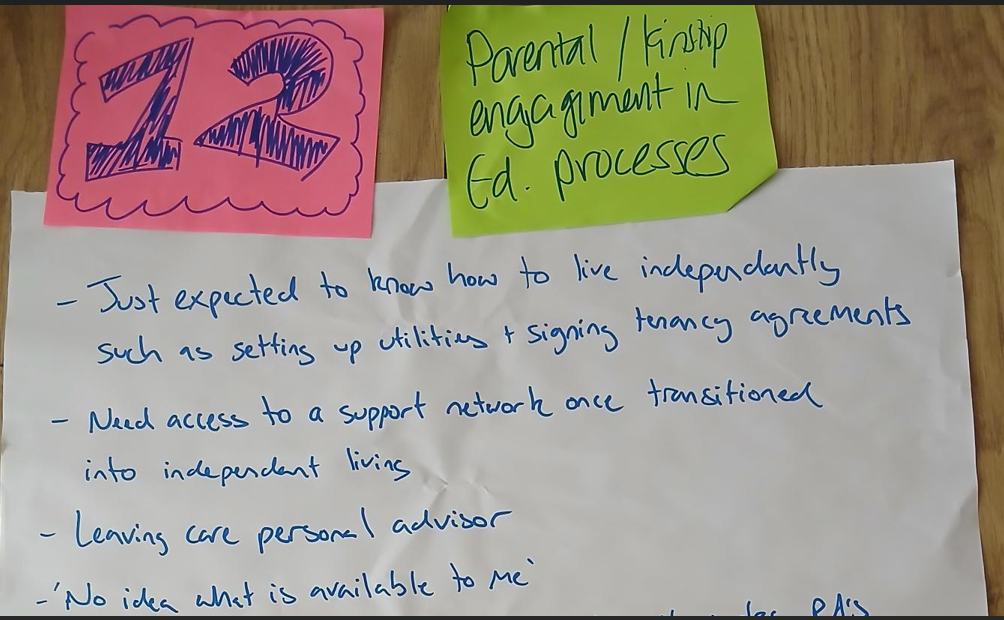 12
Parental / kinship
engagement in
Ed. processes
- Just expected to know how to live independantly
such as setting up utilities + signing tenancy agreements
- Need access to a support network once transitioned
into independant living
- Leaving care personal advisor
- 'No idea what is available to me'
PA's